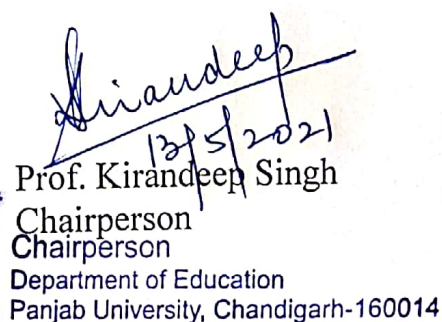 Kirandeep
13/5/2021
Prof. Kirandeep Singh
Chairperson
Chairperson
Department of Education
Panjab University, Chandigarh-160014